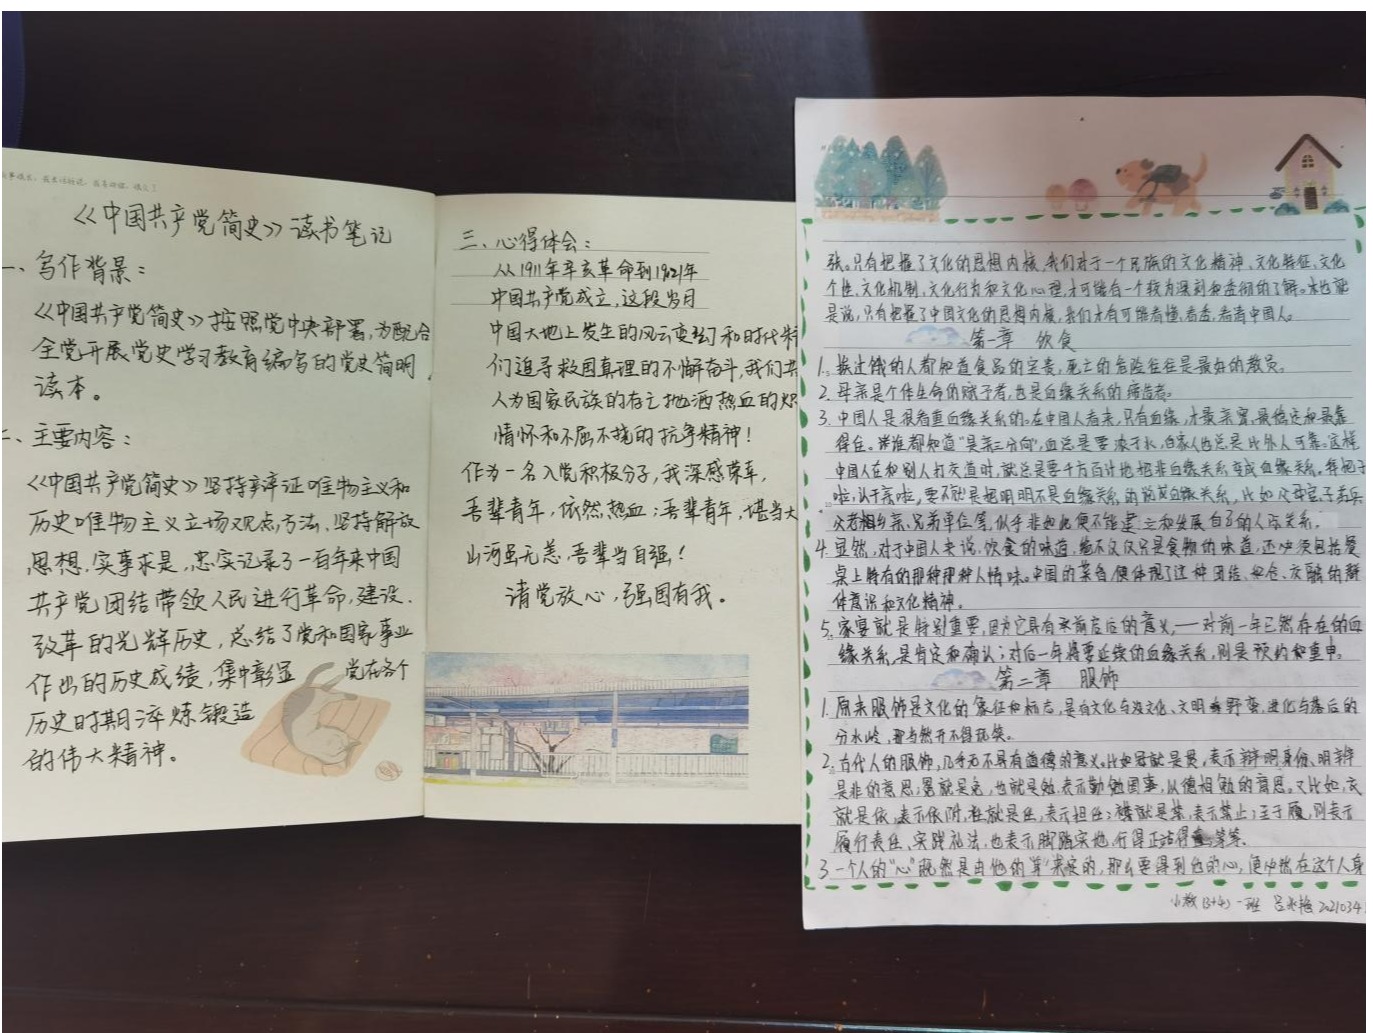 《中国共产党简史》读书笔记
一、写作背景：
《中国共产党简史》按照党中央部署，为配合
全党开展党史学习教育编写的党史简明
读本。
二、主要内容：
《中国共产党简史》坚持辩证唯物主义和
历史唯物主义立场观点方法，坚持解放
思想，实事求是，忠实记录了一百年来中国
共产党团结带领人民进行革命、建设、
改革的光辉历史，总结了党和国家事业
作出的历史成绩，集中彰显 党在各个
历史时期淬炼锻造
的伟大精神。
三、心得体会：
从1911年辛亥革命到1921年
中国共产党成立，这段岁月
中国大地上发生的风云变幻和时代
们追寻救国真理的不懈奋斗，我们共
人为国家民族的存亡抛洒热血的
情怀和不屈不挠的抗争精神！
作为一名入党积极分子，我深感荣幸，
吾辈青年，依然热血；吾辈青年，堪当大
山河虽无恙，吾辈当自强！
请党放心，强国有我。
张。只有把握了文化的思想内核，我们对于一个民族的文化精神、文化特征、文化
个性、文化机制、文化行为和文化心理，才可能有一个较为深刻和透彻的了解。也就
是说，只有把握了中国文化的思想内核，我们才有可能看懂、看透、看清中国人。
第一章 饮食
1. 挨过饿的人都知道食品的宝贵，死亡的危险往往是最好的教员。
2. 母亲是个体生命的赋予者，也是血缘关系的缔造者。
3. 中国人是很看重血缘关系的。在中国人看来，只有血缘，才最亲密、最稳定和最靠
得住。谁都知道“是亲三分向”，血总是要浓于水，自家人也总是比外人可靠。这样
中国人在和别人打交道时，就总要千方百计地把非血缘关系变成血缘关系。
啦，认干亲啦，要不就是把明明不是血缘关系的说成血缘关系，比如父母官、子弟兵
父老乡亲、兄弟单位等，似乎非如此便不能建立和发展自己的人际关系。
4. 显然，对于中国人来说，饮食的味道，绝不仅仅只是食物的味道，还必须包括餐
桌上特有的那种人情味。中国的菜肴，便体现了这种团结、和合、交融的群
体意识和文化精神。
5. 家宴就是特别重要，因为它具有承前启后的意义，——对前一年已然存在的血
缘关系，是肯定和确认；对后一年将要延续的血缘关系，则是预约和重申。
第二章 服饰
1. 原来服饰是文化的象征和标志，是有文化与没文化、文明与野蛮、进化与落后的
分水岭，那当然开不得玩笑。
2. 古代人的服饰，几乎无不具有道德的意义。比如冠就是贯，表示辩明身份、明辨
是非的意思；冕就是免，也就是勉，表示勤勉国事，以德相勉的意思。又比如，衣
就是依，表示依附，衽就是任，表示担任；襟就是禁，表示禁止；至于履，则表示
履行责任、实践礼法，也表示脚踏实地，行得正站得直等等。
3. 一个人的“心”既然是由他的“身”来定的，那么要得到他的心，便必然在这个人身
小教(3+4)一班 2021034